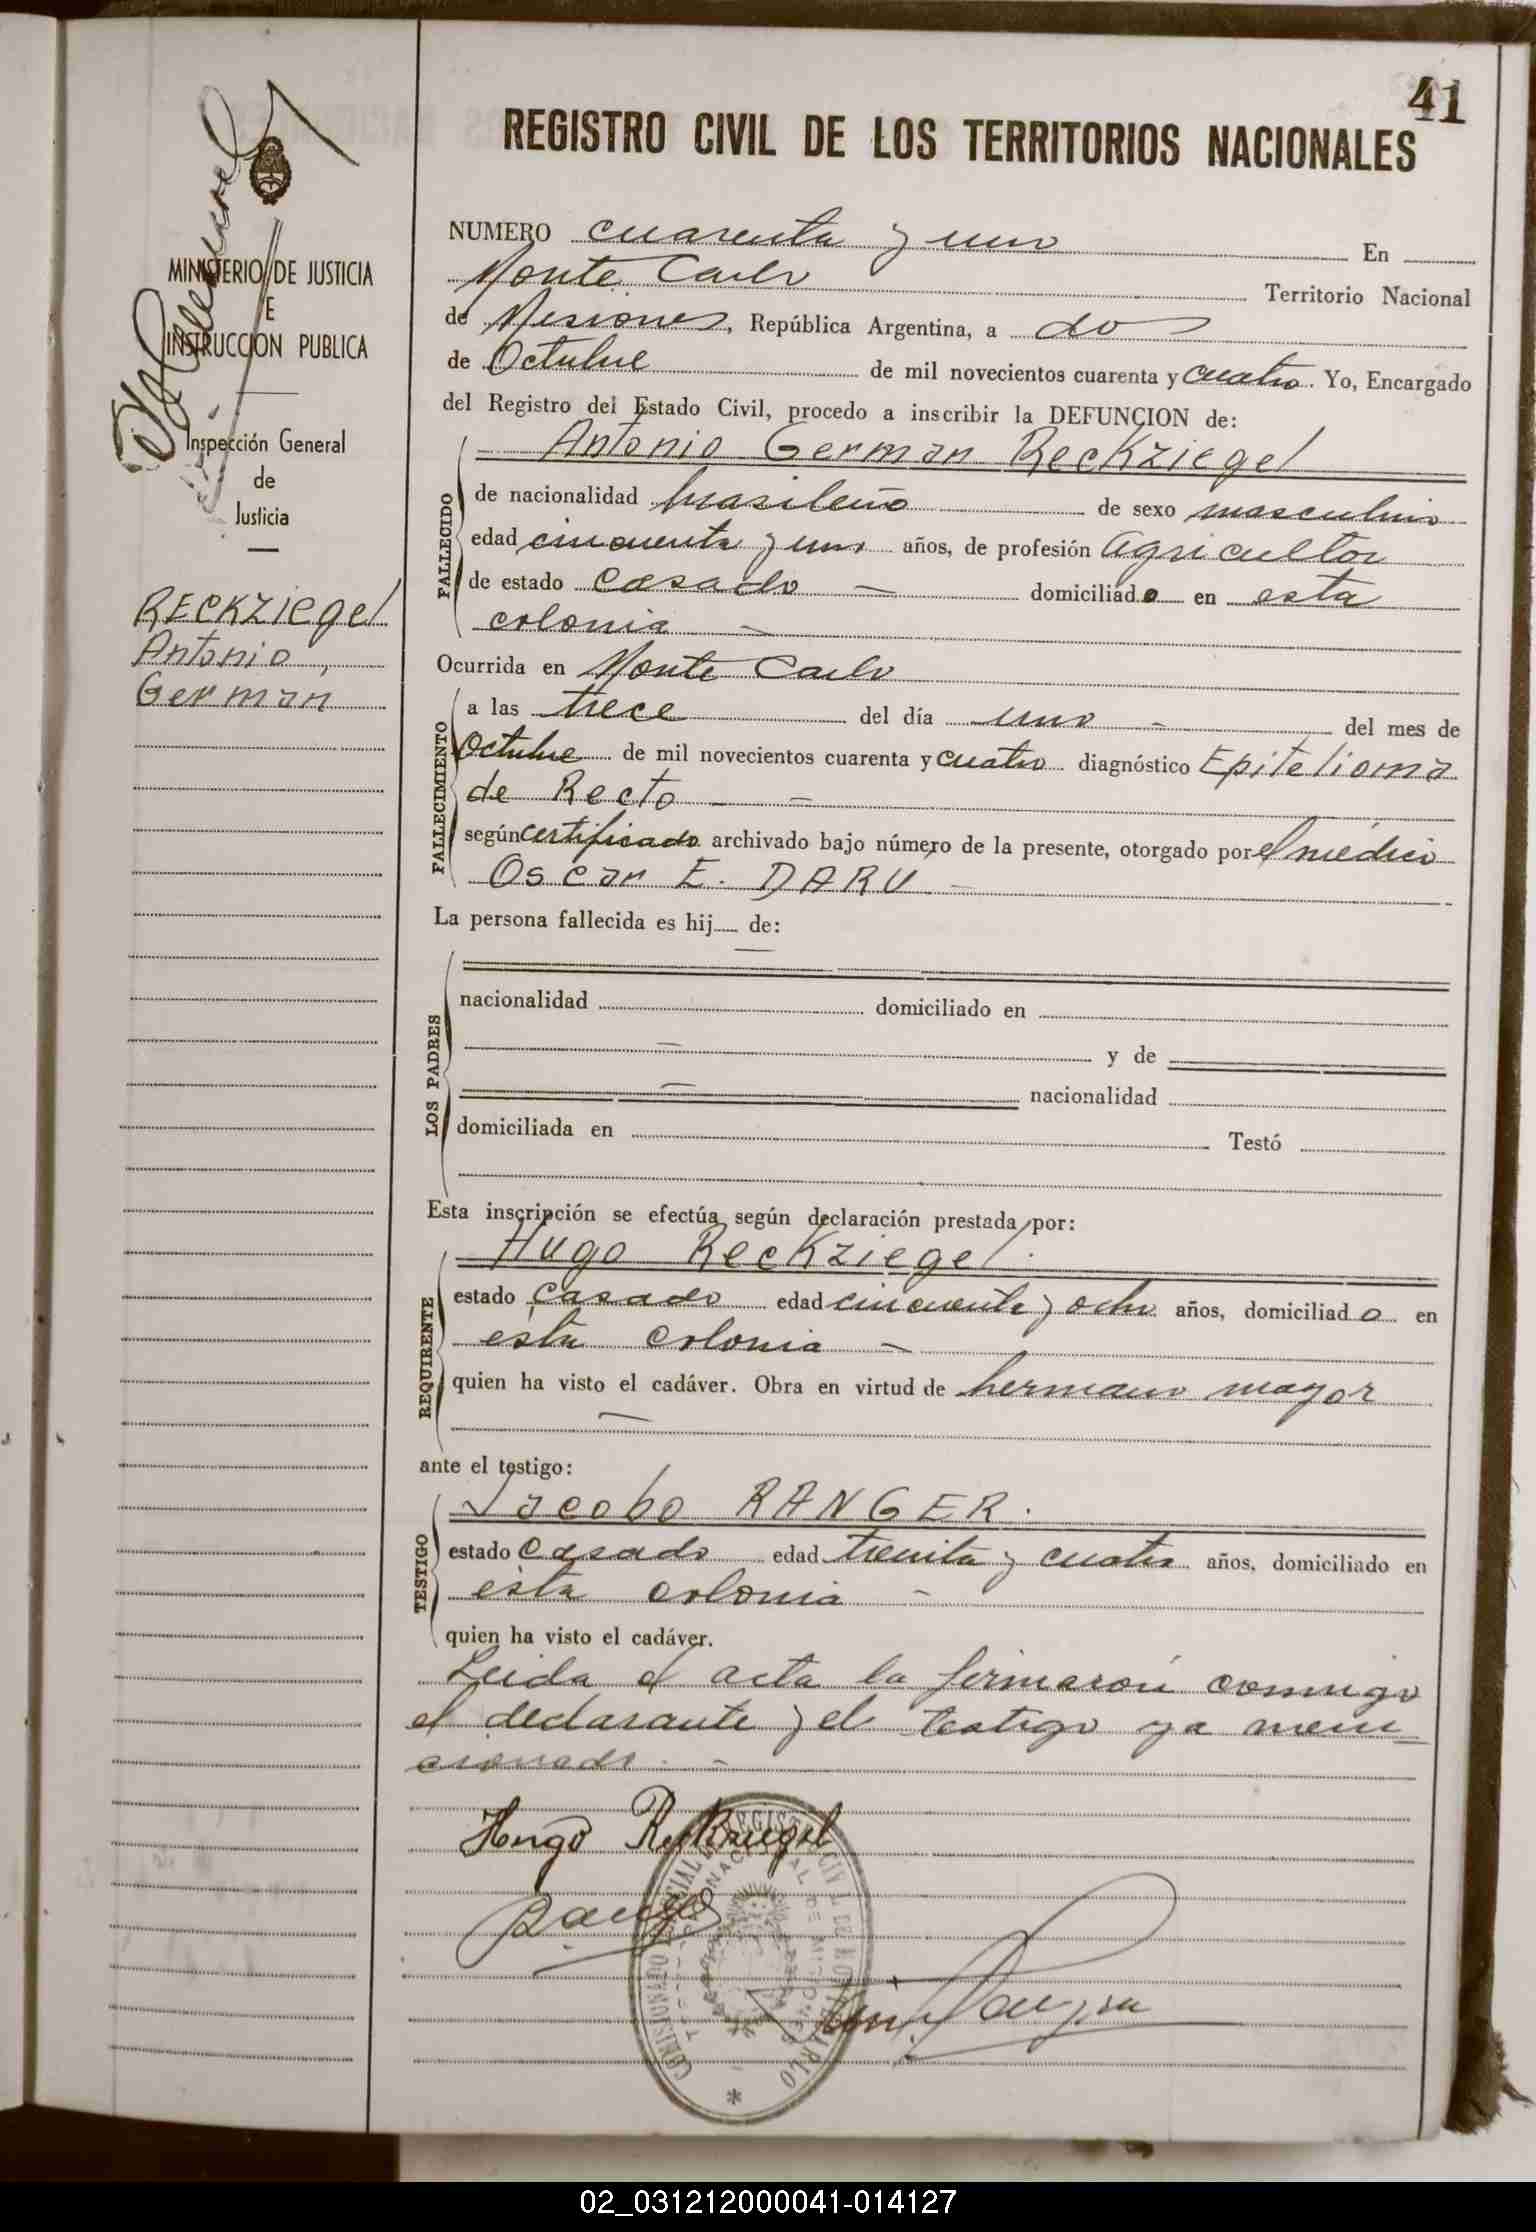 41
REGISTRO CIVIL DE LOS TERRITORIOS NACIONALES
MINISTERIO DE JUSTICIA
E
INSTRUCCION PUBLICA
Inspección General
de
Justicia
RECKZIEgel
Antonio,
Germán
NUMERO cuarenta y uno En
Monte Carlo Territorio Nacional
de Misiones, República Argentina, a dos
de Octubre de mil novecientos cuarenta y cuatro. Yo, Encargado
del Registro del Estado Civil, procedo a inscribir la DEFUNCION de:
Antonio German Reckziegel
FALLECIDO
de nacionalidad brasileño de sexo masculino
edad cincuenta y uno años, de profesión agricultor
de estado casado — domiciliado en esta
colonia —
Ocurrida en Monte Carlo
FALLECIMIENTO
a las trece del día uno — del mes de
Octubre de mil novecientos cuarenta y cuatro diagnóstico Epitelioma
de Recto — —
según certificado archivado bajo número de la presente, otorgado por el médico
Oscar E. DARU —
La persona fallecida es hij de:
LOS PADRES
nacionalidad domiciliado en
— y de
— nacionalidad
domiciliada en Testó
Esta inscripción se efectúa según declaración prestada por:
Hugo Reckziegel.
REQUIRENTE
estado casado edad cincuenta y ocho años, domiciliado en
esta colonia —
quien ha visto el cadáver. Obra en virtud de hermano mayor
—
ante el testigo:
Jacobo RANGER.
TESTIGO
estado casado edad treinta y cuatro años, domiciliado en
esta colonia —
quien ha visto el cadáver.
Leida el acta la firmaron conmigo
el declarante y el testigo ya men-
cionado. —
Hugo Reckziegel
Ranger
02_031212000041-014127